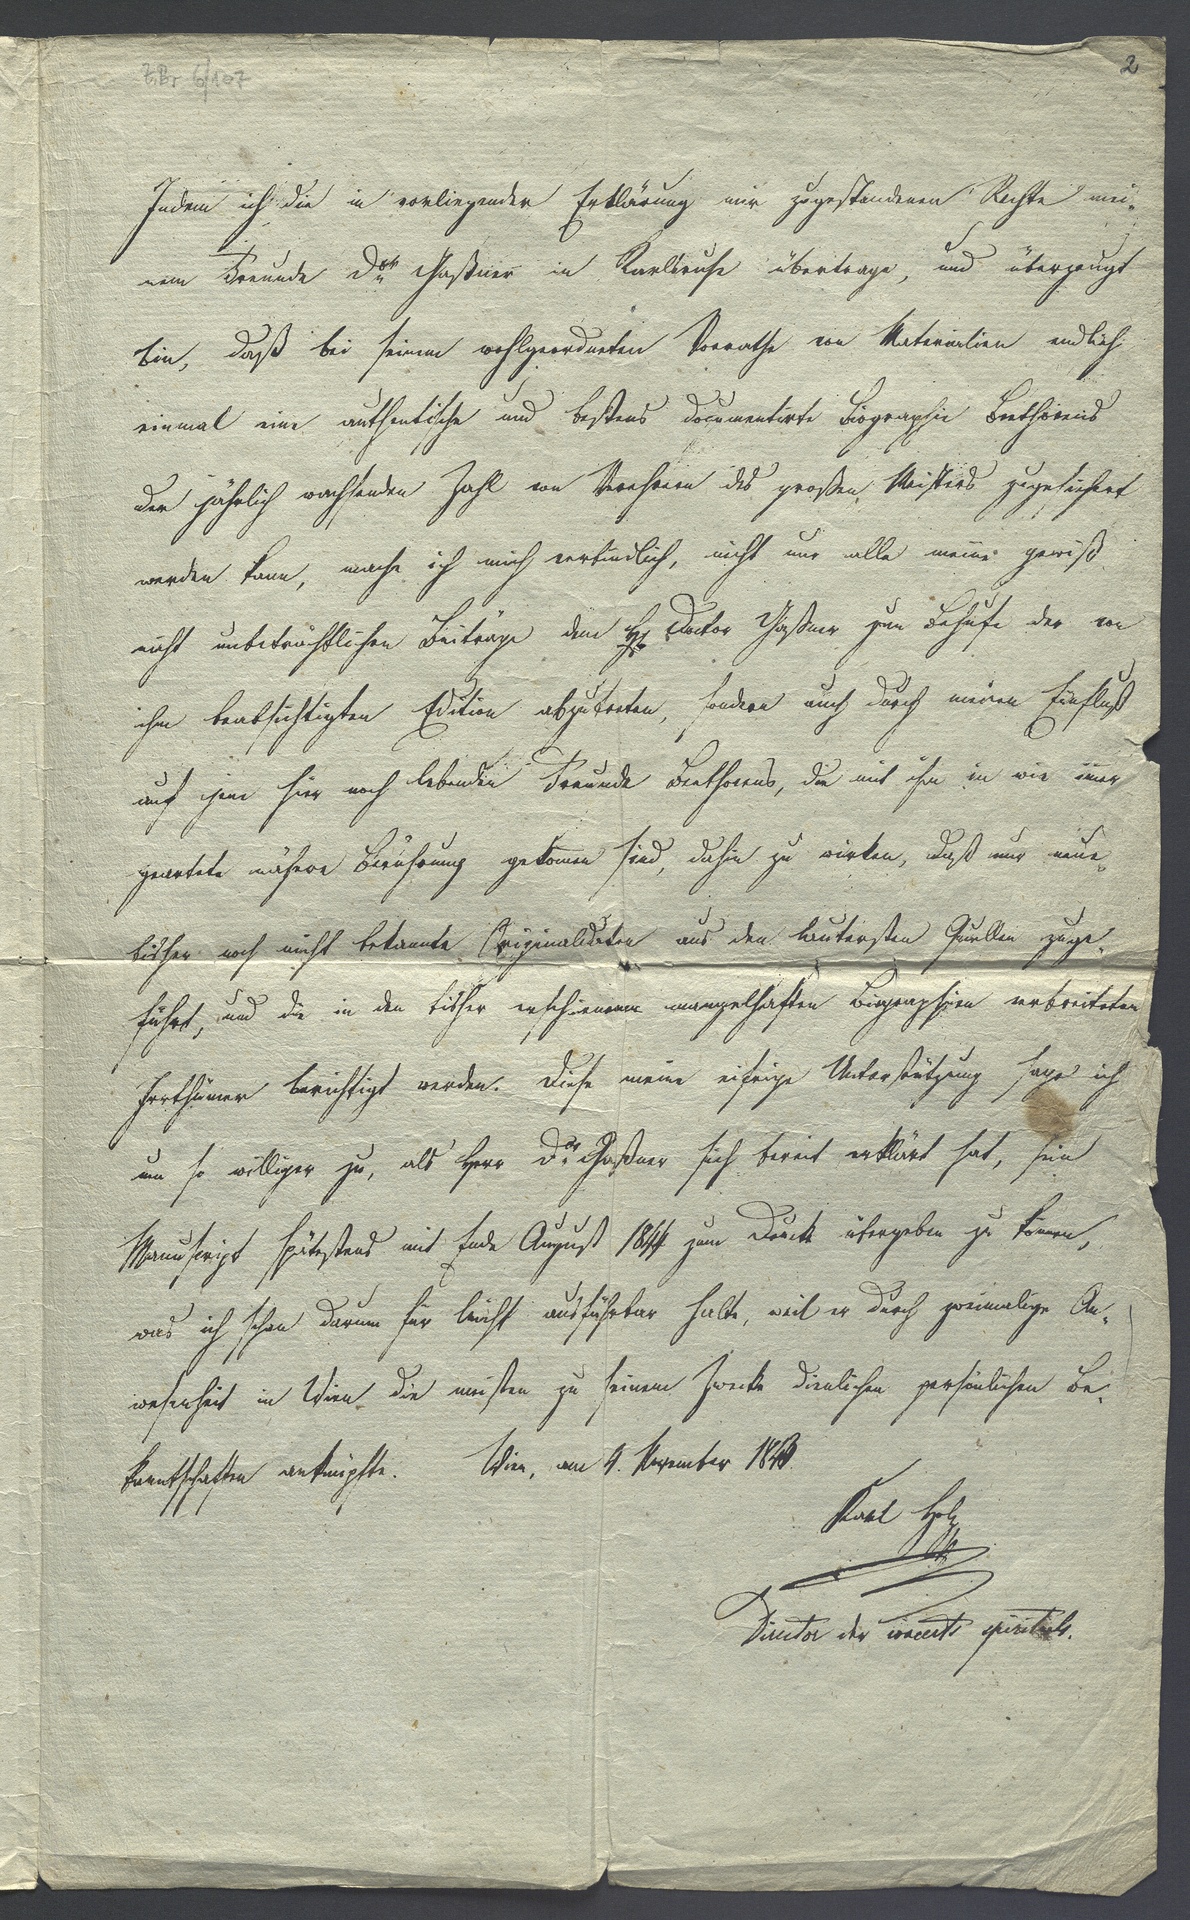 Z.Br 6/107
2
Indem ich die in vorliegender Erklärung mir zugestandenen Rechte mei-
nem Freunde Dor Gaßner in Karlsruhe übertrage, und überzeugt
bin, daß bei seinem wohlgeordneten Vorrathe von Materialien endlich
einmal eine authentische und bestens documentirte Biographie Beethovens
der jährlich wachsenden Zahl von Verehrern des großen Meisters zugesichert
werden kann, mache ich mich verbindlich, nicht nur alle meine gewiß
nicht unbeträchtlichen Beiträge dem H. Doctor Gaßner zum Behufe der von
ihm beabsichtigten Edition abzutreten, sondern auch durch meinen Einfluß
auf jene hier noch lebenden Freunde Beethovens, die mit ihm in wie im̅er
geartete nähere Berührung gekom̅en sind, dahin zu wirken, daß nur neue
bisher noch nicht bekannte Originaldaten aus den lautersten Quellen zuge-
führt, und die in den bisher erschienenen mangelhaften Biographien verbreiteten
Irrthümer berichtigt werden. Diese meine eifrige Unterstützung sage ich
um so williger zu, als Herr Dor Gaßner sich bereit erklärt hat, sein
Manuscript spätestens mit Ende August 1844 zum Drucke übergeben zu können,
was ich schon darum für leicht ausführbar halte, weil er durch zweimalige An-
wesenheit in Wien die meisten zu seinem Zwecke dienlichen persönlichen Be-
kanntschaften anknüpfte. Wien, am 4. November 1843
Karl Holz
Director der concerts spirituels.